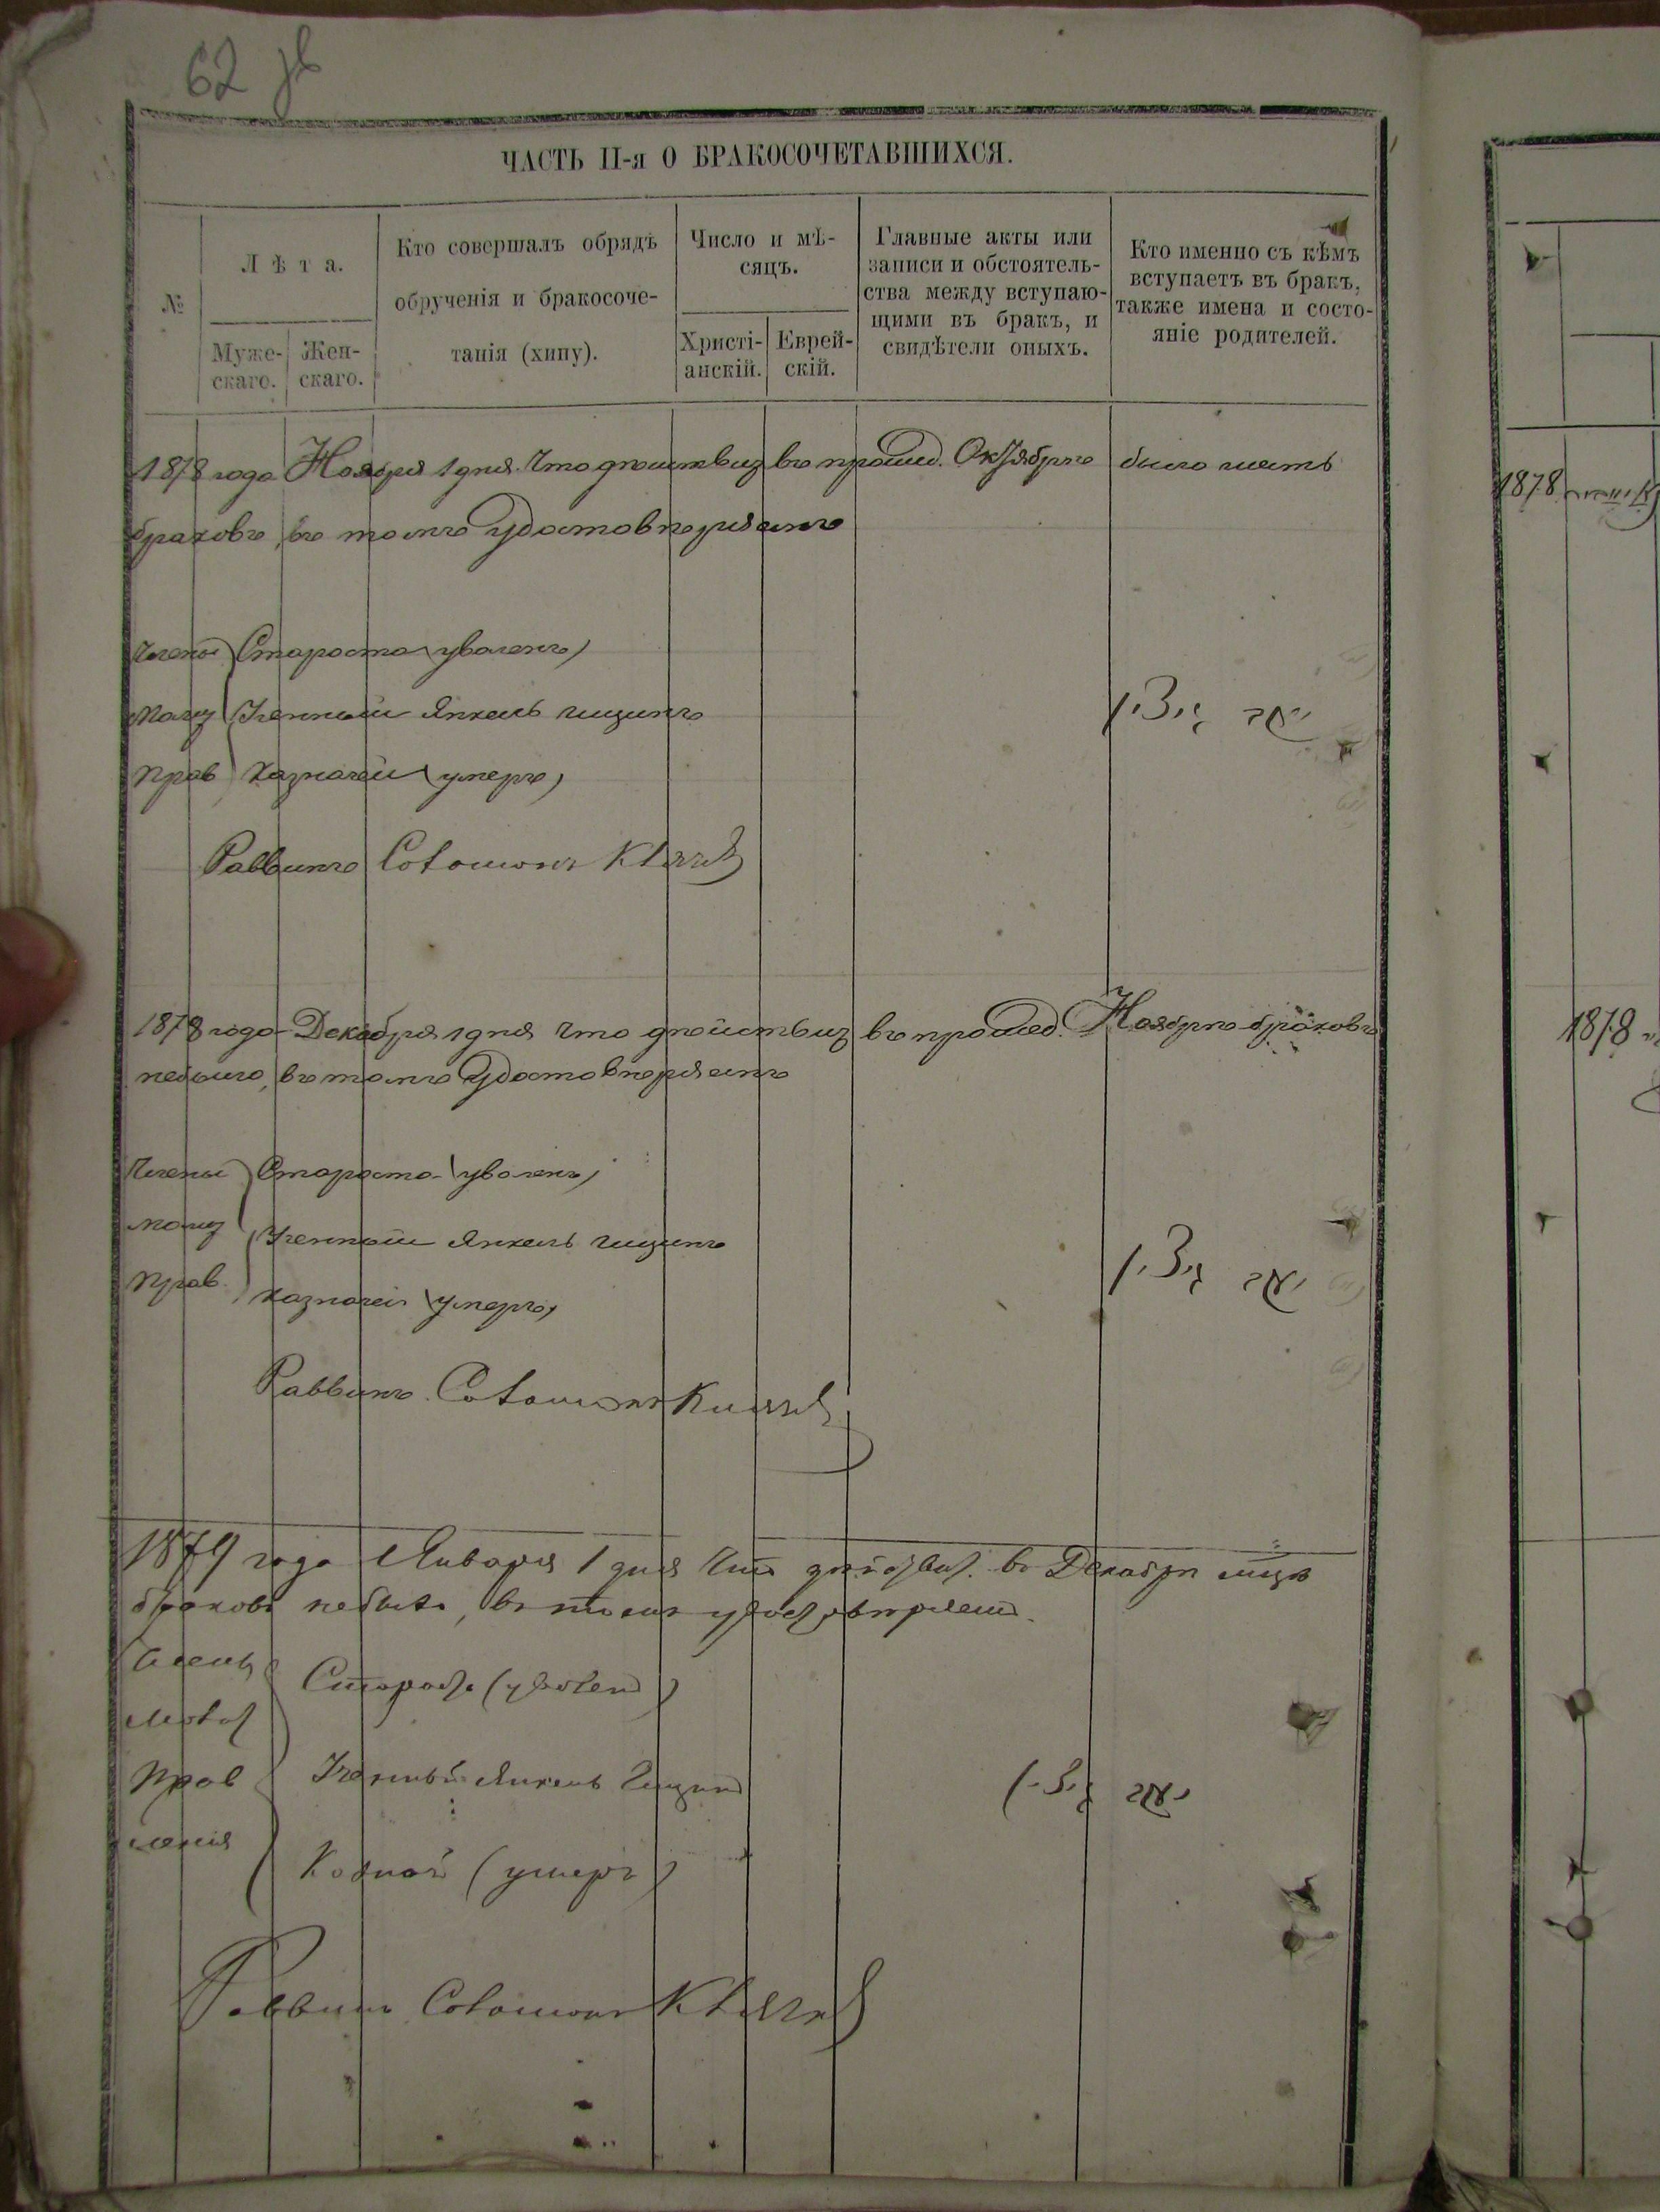 62 зв
ЧАСТЬ II-я О БРАКОСОЧЕТАВШИХСЯ.
№
Лѣта.
Муже-
скаго.
Жен-
скаго.
Кто совершалъ обрядъ
обрученія и бракосоче-
танія (хипу).
Число и мѣ-
сяцъ.
Христі-
анскій.
Еврей-
скій.
Главные акты или
записи и обстоятель-
ства между вступаю-
щими въ бракъ, и
свидѣтели оныхъ.
Кто именно съ кѣмъ
вступаетъ въ бракъ,
также имена и состо-
яніе родителей.
1878 года Ноября 1 дня. Что дѣйствит въ прошед. Октябрѣ было шесть
браковъ, въ томъ удостовѣряемъ
Члены Староста (уволенъ)
Молит Ученный Янкель
Прав Казначей (умеръ)
Раввинъ Соломонъ
1878 года Декабря 1 дня Что дѣйствит въ прошед. Ноябрѣ браковъ
небыло, въ томъ удостовѣряемъ
Члены Староста (уволенъ)
молит Ученный Янкель
Прав. Казначей (умеръ)
Раввинъ Соломонъ
1879 года Января 1 дня Что дѣйствит. въ Декабрѣ мцѣ
браковъ небыло, въ томъ удостовѣряемъ.
Члены Староста (уволенъ)
Молит
Прав Ученный Янкель
ленія
Казначей (умеръ)
Раввинъ Соломонъ
1878
1878